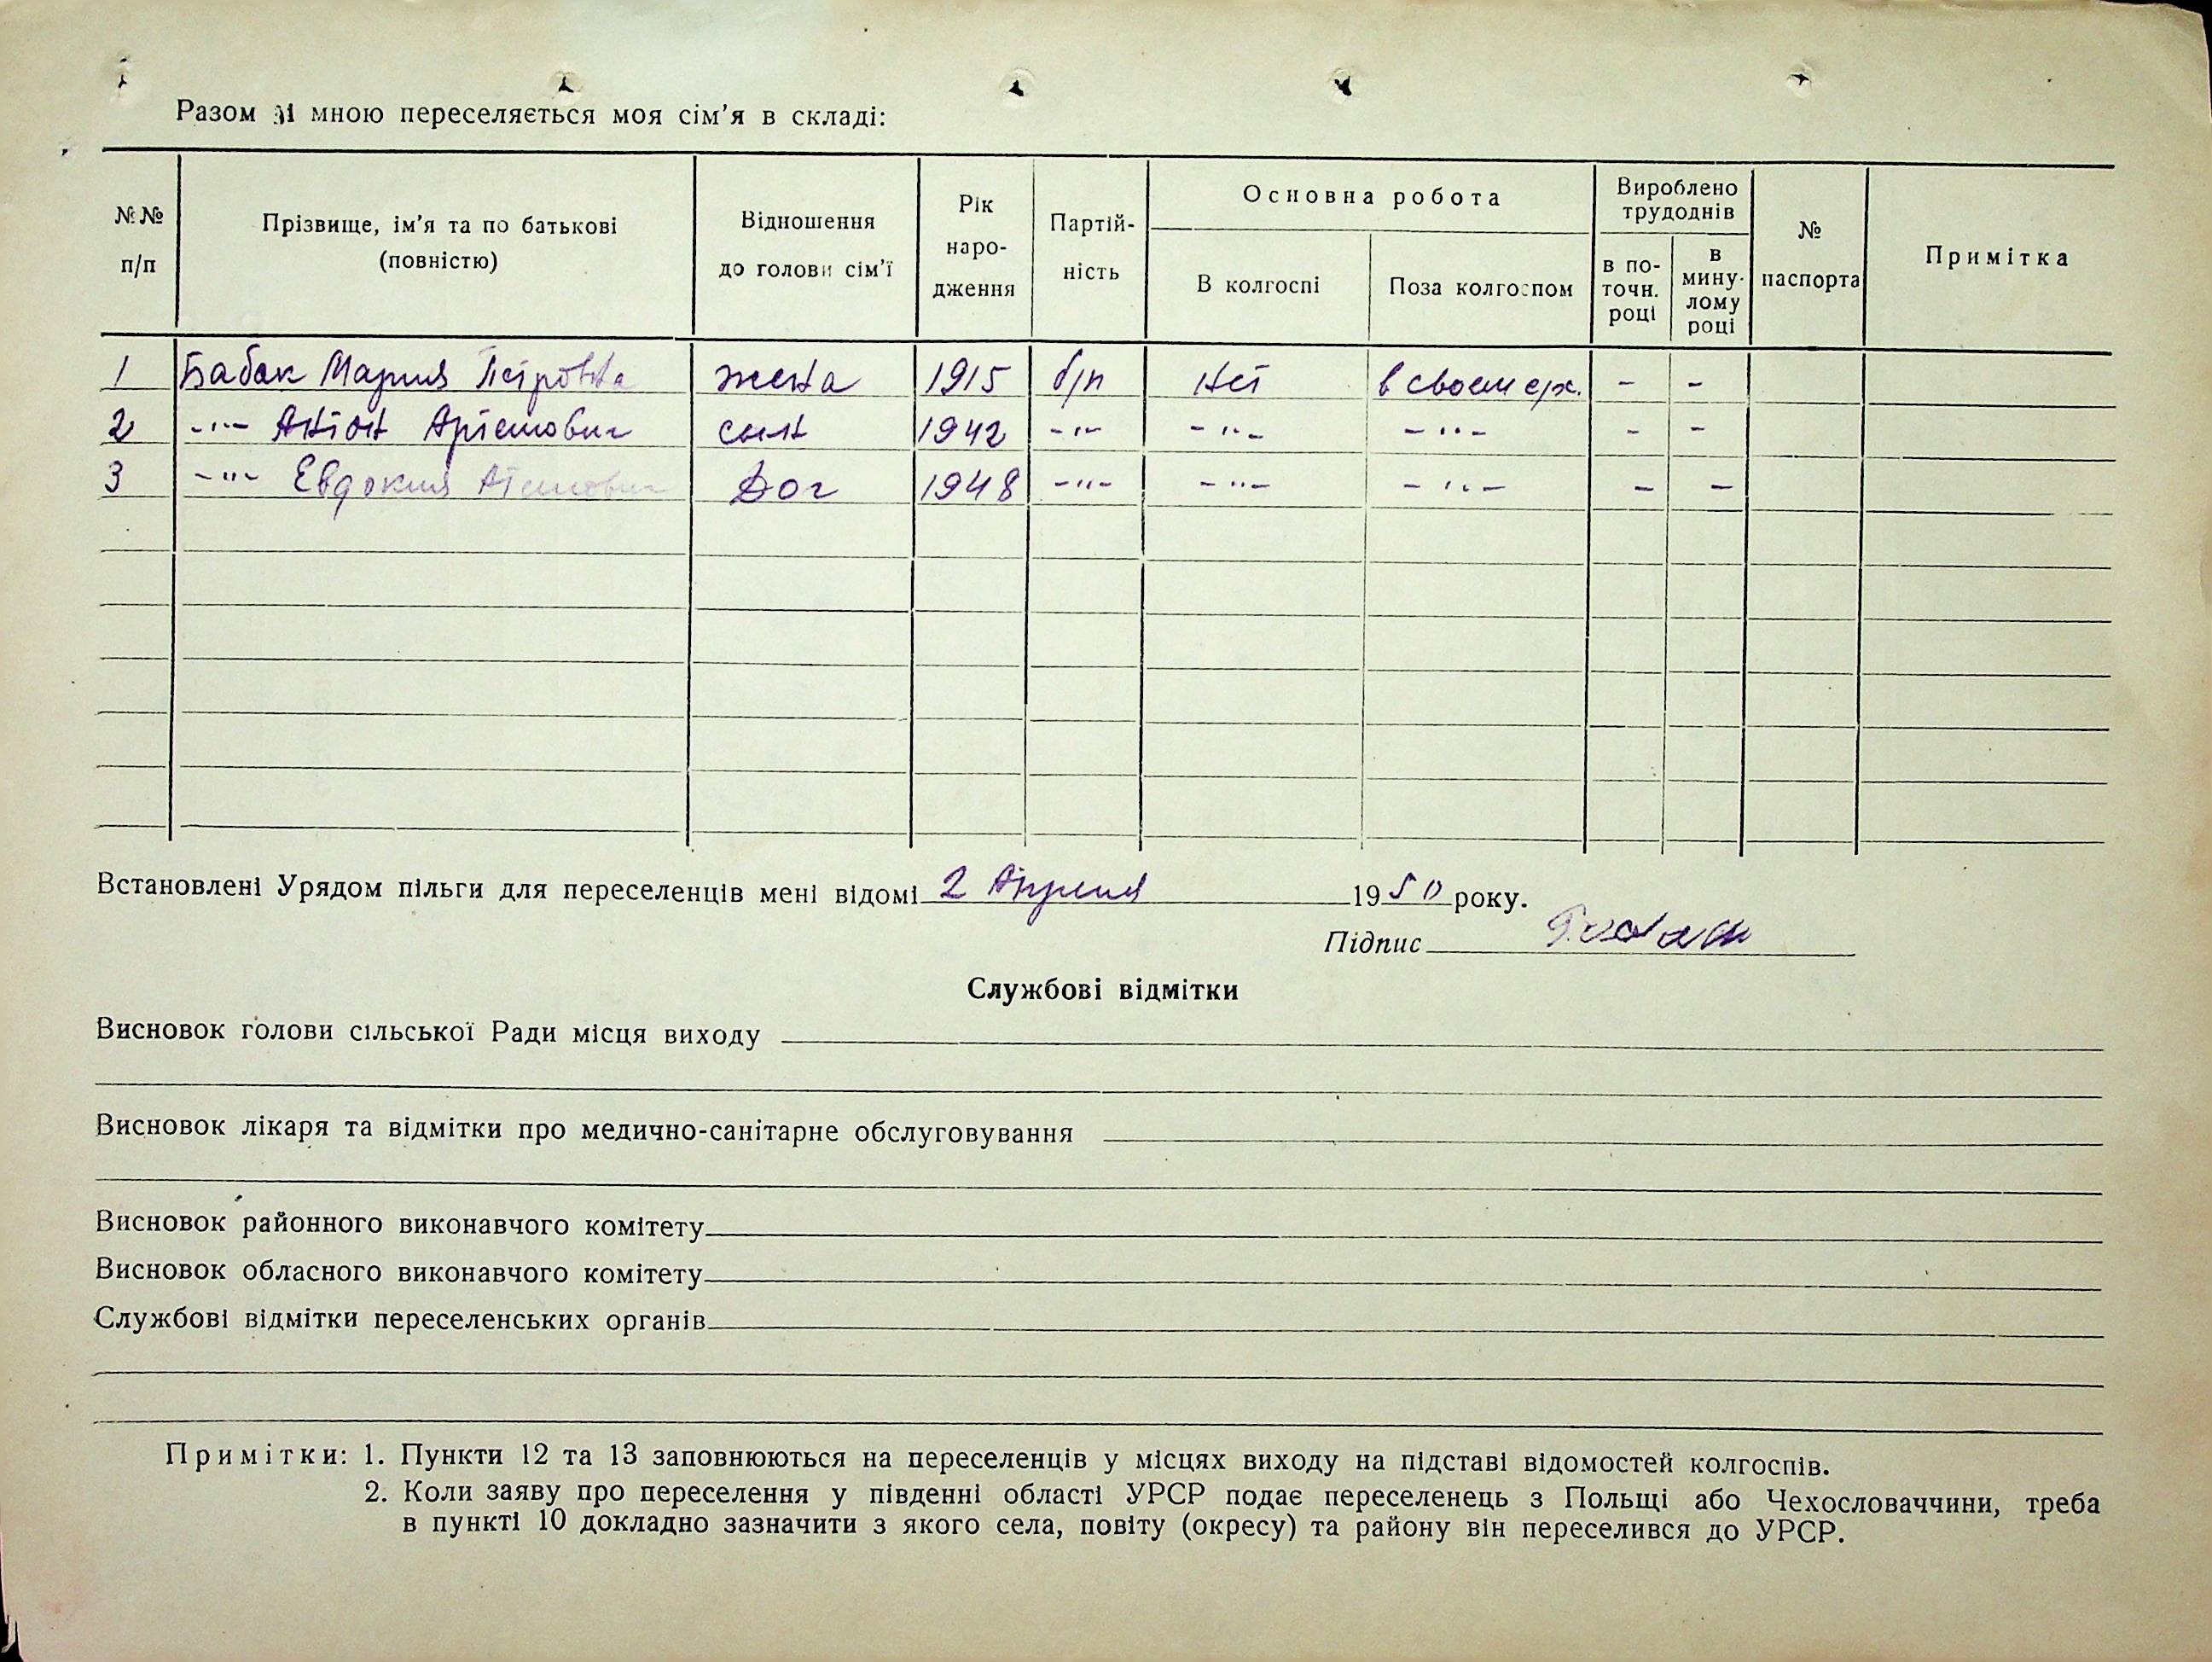 Разом зі мною переселяється моя сім'я в складі:
№№ п/п
Прізвище, ім'я та по батькові (повністю)
Відношення до голови сім'ї
Рік наро-дження
Партій-ність
Основна робота
В колгоспі
Поза колгоспом
Вироблено трудоднів
в по-точн. році
в мину-лому році
№ паспорта
Примітка
1 Бабак Мария Петровна жена 1915 б/п нет в своем с/х. - -
2 -"- Антон Артемович сын 1942 -"- -"- -"- - -
3 -"- Евдокия Доч 1948 -"- -"- -"- - -
Встановлені Урядом пільги для переселенців мені відомі 2 Апреля 1950 року.
Підпис
Службові відмітки
Висновок голови сільської Ради місця виходу
Висновок лікаря та відмітки про медично-санітарне обслуговування
Висновок районного виконавчого комітету
Висновок обласного виконавчого комітету
Службові відмітки переселенських органів
Примітки: 1. Пункти 12 та 13 заповнюються на переселенців у місцях виходу на підставі відомостей колгоспів.
2. Коли заяву про переселення у південні області УРСР подає переселенець з Польщі або Чехословаччини, треба
в пункті 10 докладно зазначити з якого села, повіту (окресу) та району він переселився до УРСР.